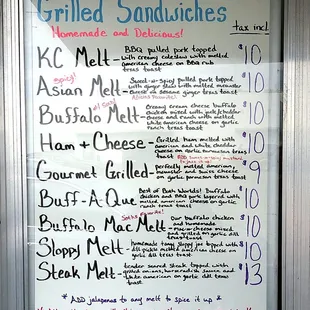 Grilled Sandwiches
Homemade and Delicious!
tax incl.
KC Melt - BBQ pulled pork topped
with creamy coleslaw with melted
american cheese on BBQ rub
texas toast
$10
Spicy!
Asian Melt - Sweet-n-Spicy pulled pork topped
with ginger slaw with melted
cheese on sesame ginger texas toast
$10
Buffalo Melt - Creamy cream cheese buffalo
chicken mixed with jack/cheddar
cheese and ranch with melted
white american cheese on garlic
ranch texas toast
$10
Ham + Cheese - Grilled Ham melted with
american and white cheddar
cheese on garlic parmesan texas
toast
$10
Gourmet Grilled - perfectly melted american,
and swiss cheese
on garlic parmesan texas toast
$9
Buff-A-Que - Best of Both Worlds! Buffalo
chicken and BBQ pork layered with
melted american cheese on garlic
ranch texas toast
$10
favorite!
Buffalo Mac Melt - Our buffalo chicken
and homemade
mac-n-cheese mixed
and grilled on garlic dill
texas toast
$10
Sloppy Melt - homemade tangy sloppy joe topped
with dill pickle melted american cheese on
garlic dill texas toast
$10
Steak Melt - tender seared steak topped with
grilled onions, horseradish sauce and
white american cheese on garlic dill texas
toast
$13
* ADD jalapenos to any melt to spice it up *